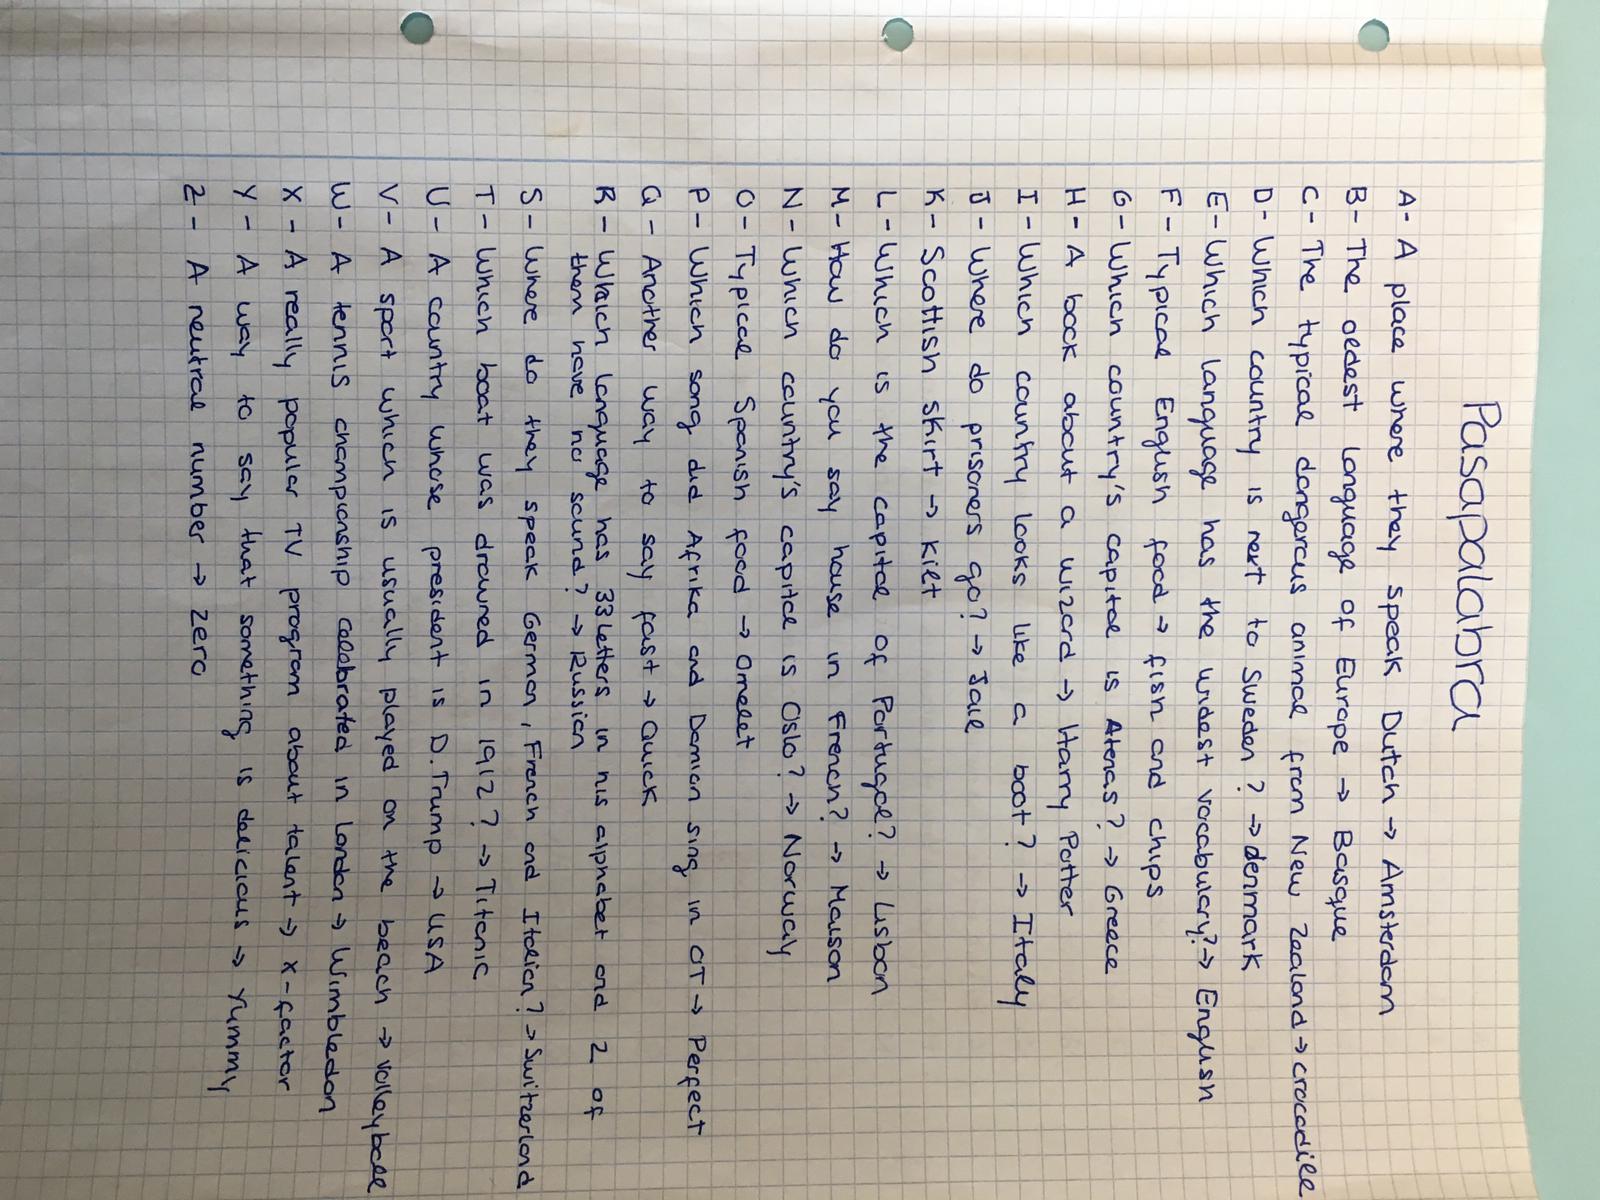 Pasapalabra
A- A place where they speak Dutch → Amsterdam
B- The oldest language of Europe → Basque
C- The typical dangerous animal from New Zealand → crocodile
D- Which country is next to Sweden? → denmark
E- Which language has the widest vocabulary? → English
F- Typical English food → fish and chips
G- Which country's capital is Atenas? → Greece
H- A book about a wizard → Harry Potter
I- Which country looks like a boot? → Italy
J- Where do prisoners go? → Jail
K- Scottish skirt → kilt
L- Which is the capital of Portugal? → Lisbon
M- How do you say house in French? → Maison
N- Which country's capital is Oslo? → Norway
O- Typical Spanish food → Omelet
P- Which song did Afrika and Damion sing in OT → Perfect
Q- Another way to say fast → Quick
R- Which language has 33 letters in his alphabet and 2 of
them have no sound? → Russian
S- Where do they speak German, French and Italian? → Switzerland
T- Which boat was drowned in 1912? → Titanic
U- A country whose president is D. Trump → USA
V- A sport which is usually played on the beach → volleyball
W- A tennis championship celebrated in london → Wimbledon
X- A really popular TV program about talent → X-factor
Y- A way to say that something is delicious → Yummy
Z- A neutral number → zero